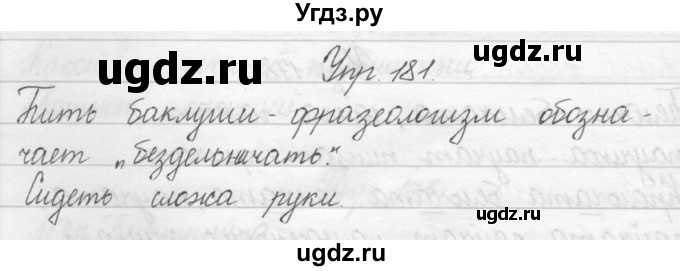 Угдз.ру
ugdz.ru
Упр. 181.
ugdz.ru
Бить баклуши - фразеологизм обозна-
чает „бездельничать."
ugdz.ru
Сидеть сложа руки.
ugdz.ru
ugdz.ru